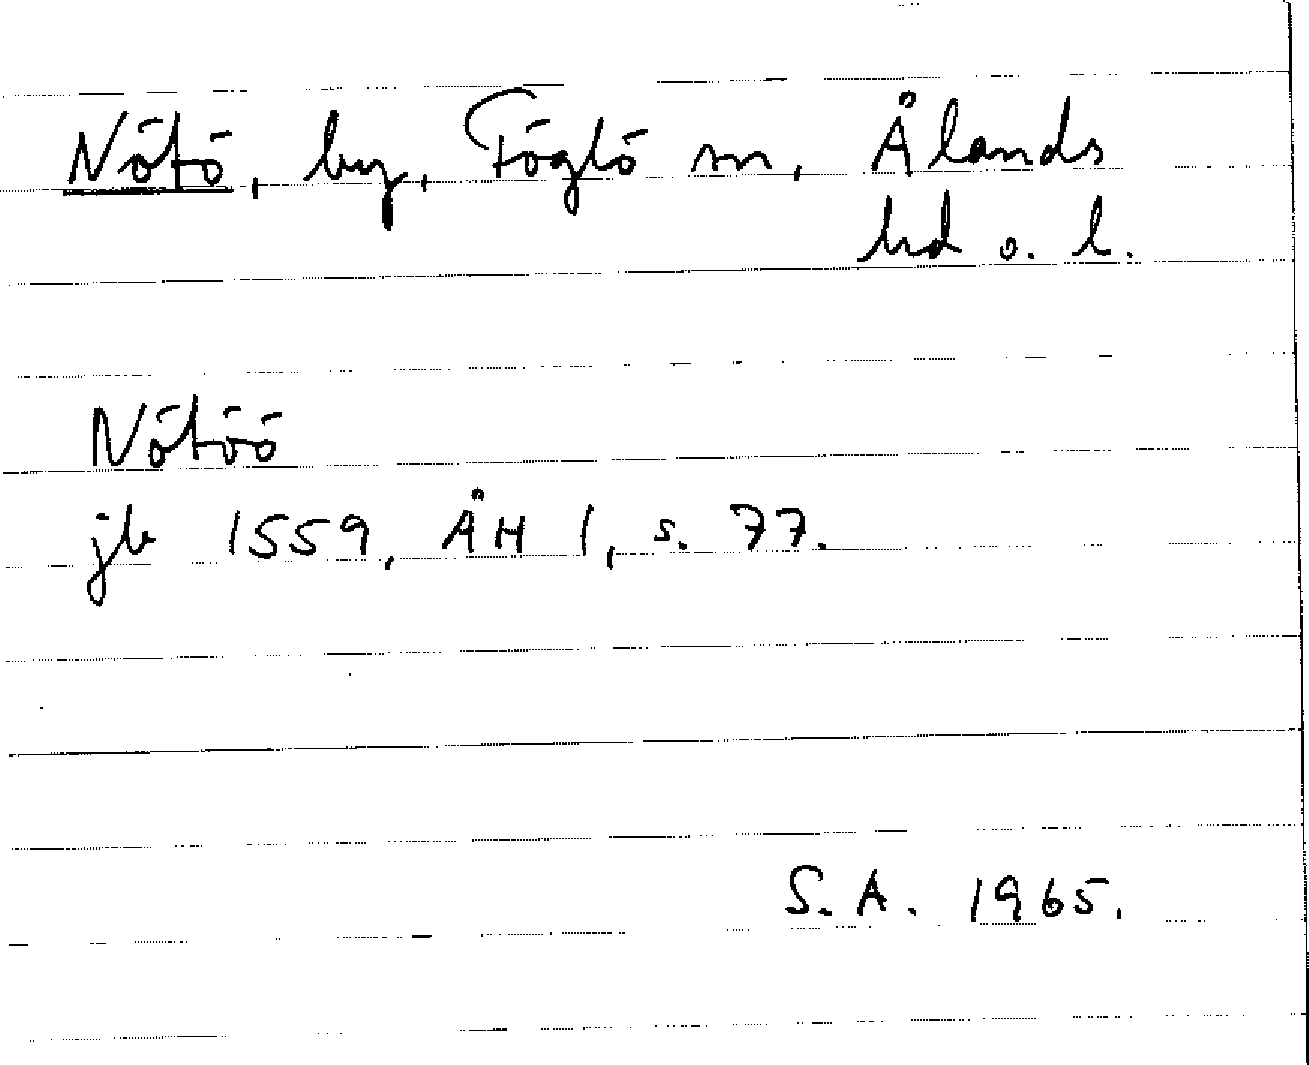 Nötö, by, Föglö sn, Ålands
hd o. l.
Nötöö
jb 1559, ÅH 1, s. 77.
S.A. 1965.